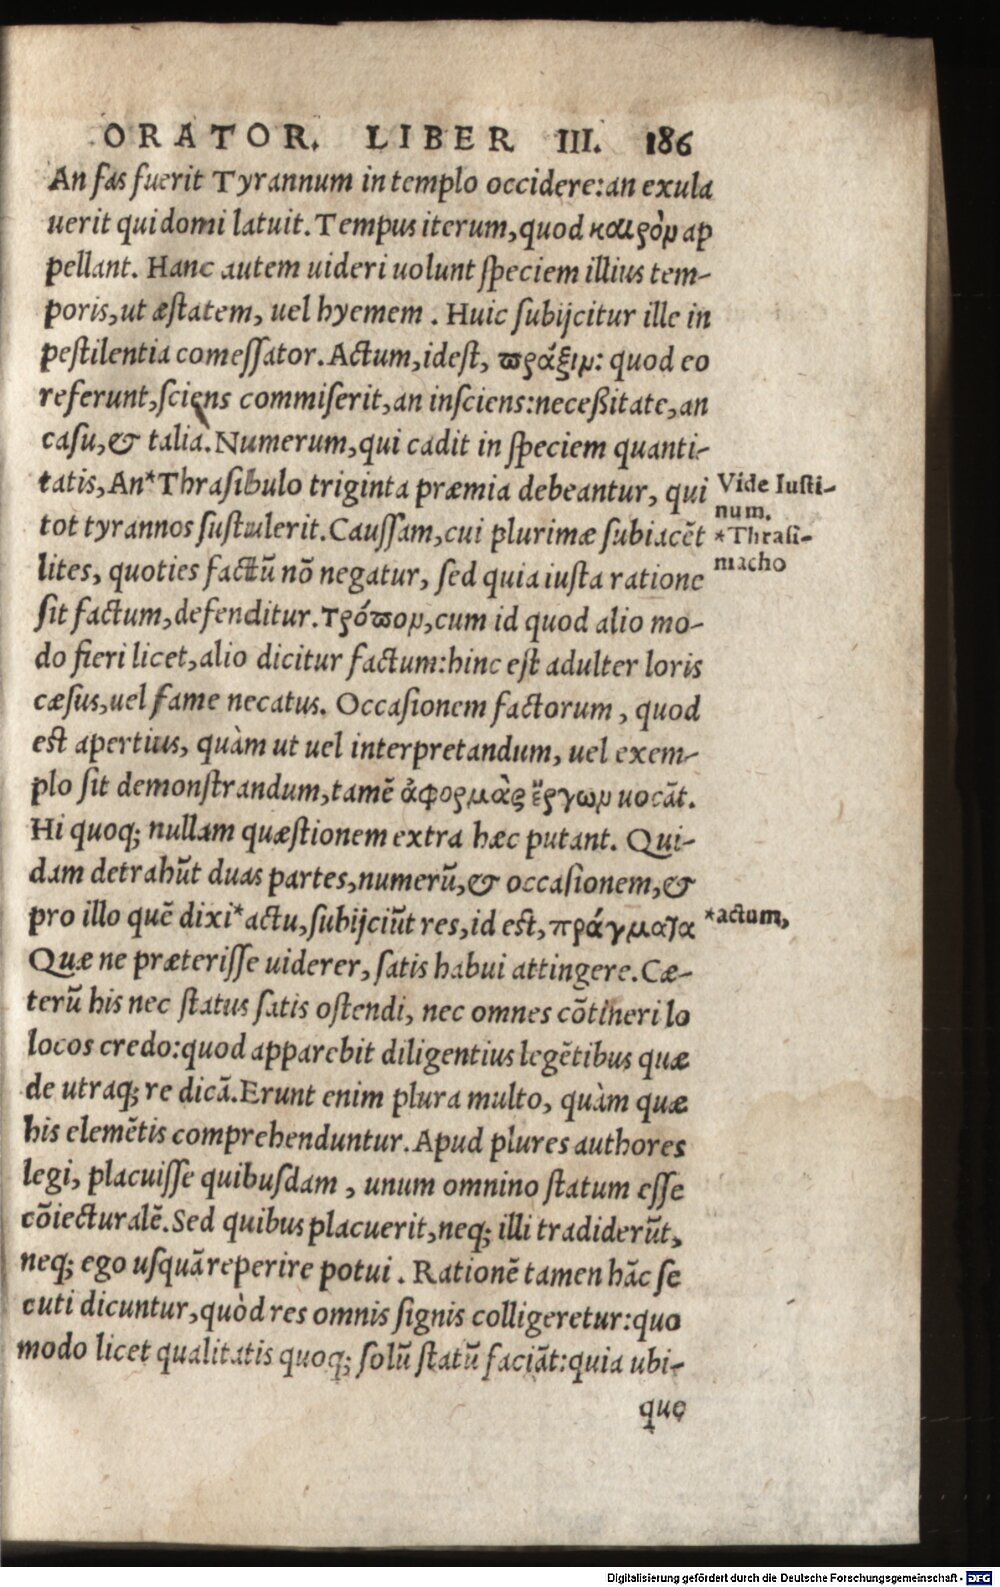 ORATOR. LIBER III. 186
An fas fuerit Tyrannum in templo occidere: an exula
uerit qui domi latuit. Tempus iterum, quod καιρὸν ap
pellant. Hanc autem uideri uolunt speciem illius tem-
poris, ut æstatem, uel hyemem. Huic subijcitur ille in
pestilentia comessator. Actum, idest, πράξιν: quod eo
referunt, sciens commiserit, an insciens: necessitate, an
casu, & talia. Numerum, qui cadit in speciem quanti-
tatis, An*Thrasibulo triginta præmia debeantur, qui
Vide Iusti-
num.
tot tyrannos sustulerit. Caussam, cui plurimæ subiacēt
*Thrasi-
macho
lites, quoties factū nō negatur, sed quia iusta ratione
sit factum, defenditur. τρόπον, cum id quod alio mo-
do fieri licet, alio dicitur factum: hinc est adulter loris
cæsus, uel fame necatus. Occasionem factorum, quod
est apertius, quàm ut uel interpretandum, uel exem-
plo sit demonstrandum, tamē ἀφορμὰς ἔργων uocāt.
Hi quoq; nullam quæstionem extra hæc putant. Qui-
dam detrahūt duas partes, numerū, & occasionem, &
pro illo quē dixi*actu, subijciūt res, id est, πράγματα
*actum,
Quæ ne præterisse uiderer, satis habui attingere. Cæ-
terū his nec status satis ostendi, nec omnes cōtineri lo
locos credo: quod apparebit diligentius legētibus quæ
de utraq; re dicā. Erunt enim plura multo, quàm quæ
his elemētis comprehenduntur. Apud plures authores
legi, placuisse quibusdam, unum omnino statum esse
cōiecturalē. Sed quibus placuerit, neq; illi tradiderūt,
neq; ego usquā reperire potui. Rationē tamen hāc se
cuti dicuntur, quòd res omnis signis colligeretur: quo
modo licet qualitatis quoq; solū statū faciāt: quia ubi-
que
Digitalisierung gefördert durch die Deutsche Forschungsgemeinschaft - DFG